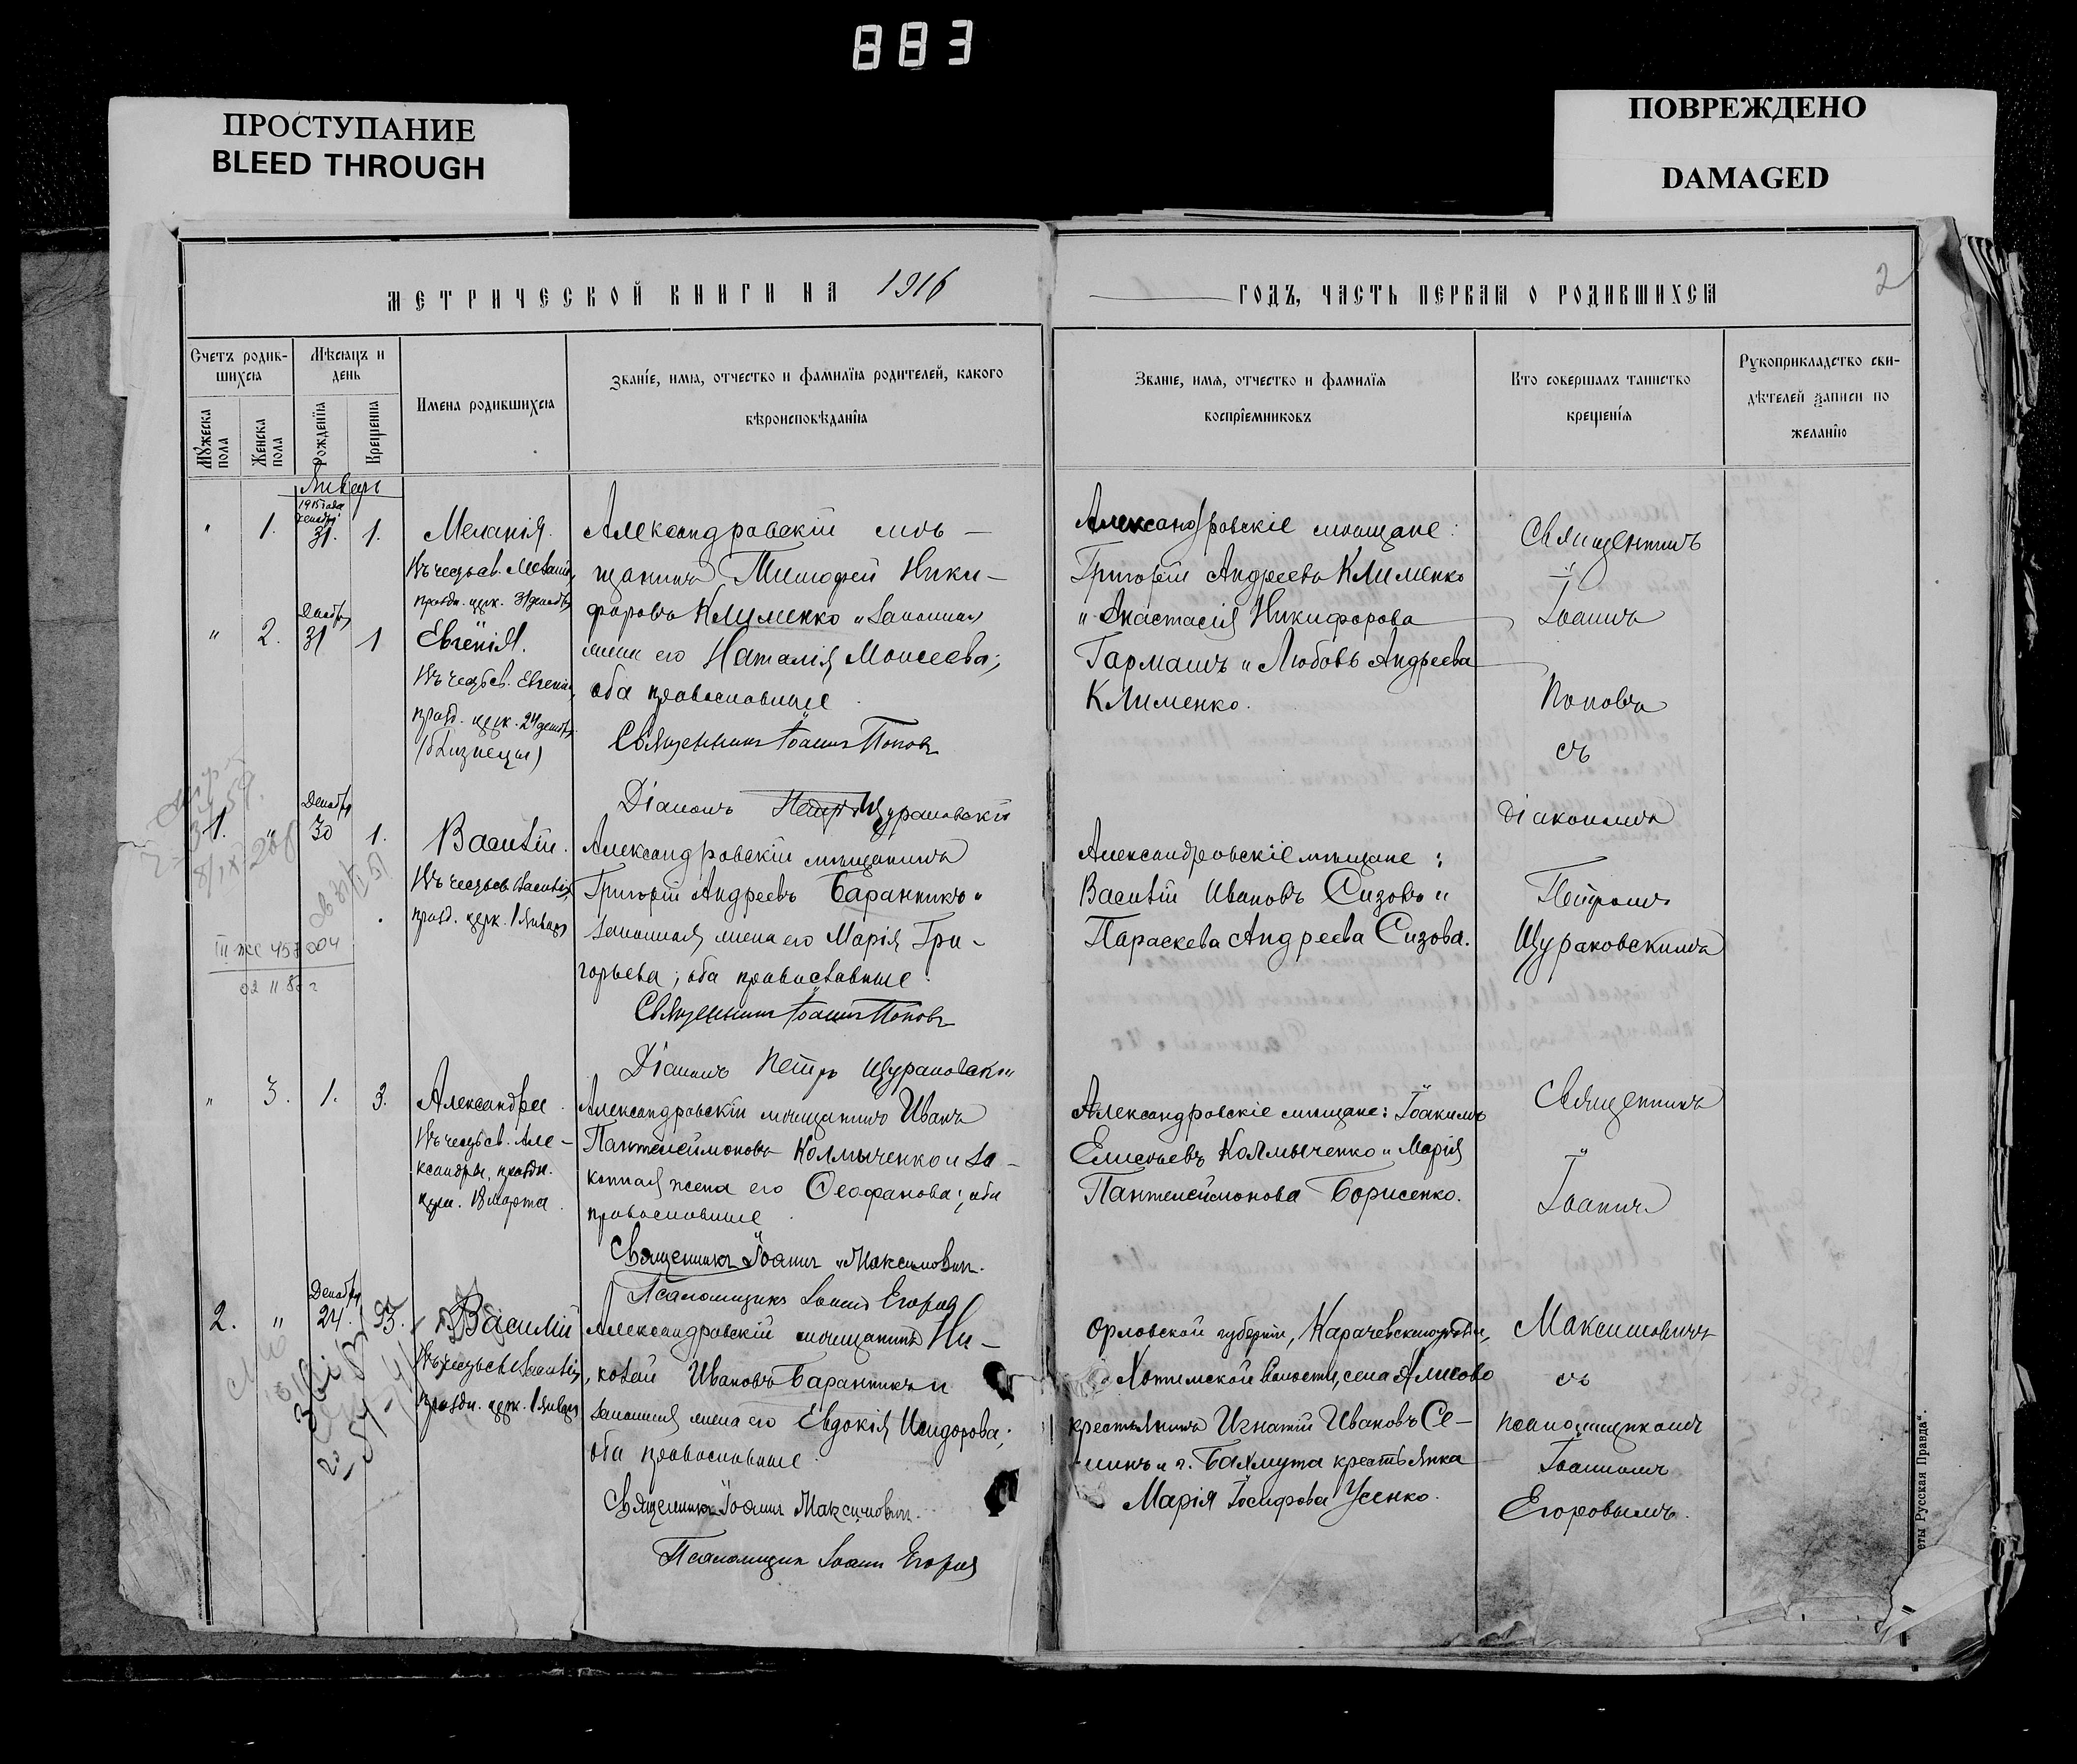 883
ПРОСТУПАНИЕ
BLEED THROUGH
ПОВРЕЖДЕНО
DAMAGED
МЕТРИЧЕСКОЙ КНИГИ НА 1916
Счетъ родив-
шихся
Мѣсяцъ и
день
Мужеска пола
Женска пола
Рожденія
Крещенія
Имена родившихся
Званіе, имя, отчество и фамилія родителей, какого
вѣроисповѣданія
Январь
1915 года
декабря
" 1. 31. 1.
Меланія.
Въ честь св. Меланіи,
праздн. церк. 31 декабря
Александровскій мѣ-
щанинъ Тимофей Ники-
форовъ Клименко и законная
жена его Наталія Моисеева;
оба православные.
Священникъ Іоаннъ Поповъ
Діаконъ Щураковскій
Декабря
" 2. 31 1
Евгенія.
Въ честь св. Евгеніи,
празд. церк. 24 декабр.
(близнецы)
Декабря
1. " 30 1.
Василій.
Въ честь св. Василія,
празд. церк. 1 января
Александровскій мѣщанинъ
Григорій Андреевъ Баранникъ и
законная жена его Марія Гри-
горьева; оба православные.
Священникъ Іоаннъ Поповъ
Діаконъ Петръ Щураковскій
III-ЖС 457004
02 II 8
" 3. 1. 3.
Александра.
Въ честь св. Але-
ксандры, праздн.
церк. 18 марта.
Александровскій мѣщанинъ Иванъ
Пантелеймоновъ Колмыченко и за-
конная жена его Ѳеофанова; оба
православные.
Священникъ Іоаннъ Максимовичъ.
Псаломщикъ Іоаннъ Егоровъ
Декабря
2. " 24. 3.
Василій
Въ честь св. Василія,
праздн. церк. 1 января
Александровскій мѣщанинъ Ни-
колай Ивановъ Баранникъ и
законная жена его Евдокія Исидорова;
оба православные.
Священникъ Іоаннъ Максимовичъ.
Псаломщикъ Іоаннъ Егоровъ
ГОДЪ, ЧАСТЬ ПЕРВАЯ О РОДИВШИХСЯ
2
Званіе, имя, отчество и фамилія
воспріемниковъ
Кто совершалъ таинство
крещенія
Рукоприкладство сви-
дѣтелей записи по
желанію
Александровскіе мѣщане:
Григорій Андреевъ Клименко
и Анастасія Никифорова
Гармашъ и Любовь Андреева
Клименко.
Священникъ
Іоаннъ
Поповъ
съ
діакономъ
Петромъ
Щураковскимъ
Александровскіе мѣщане:
Василій Ивановъ Сизовъ и
Параскева Андреева Сизова.
Александровскіе мѣщане: Іоакимъ
Елисеевъ Колмыченко и Марія
Пантелеймонова Борисенко.
Священникъ
Іоаннъ
Максимовичъ
съ
псаломщикомъ
Іоанномъ
Егоровымъ.
Орловской губерніи, Карачевскаго уѣзда,
волости, села Алисово
крестьянинъ Игнатій Ивановъ Се-
и г. Бахмута крестьянка
Марія Іосифова Усенко.
еты Русская Правда".